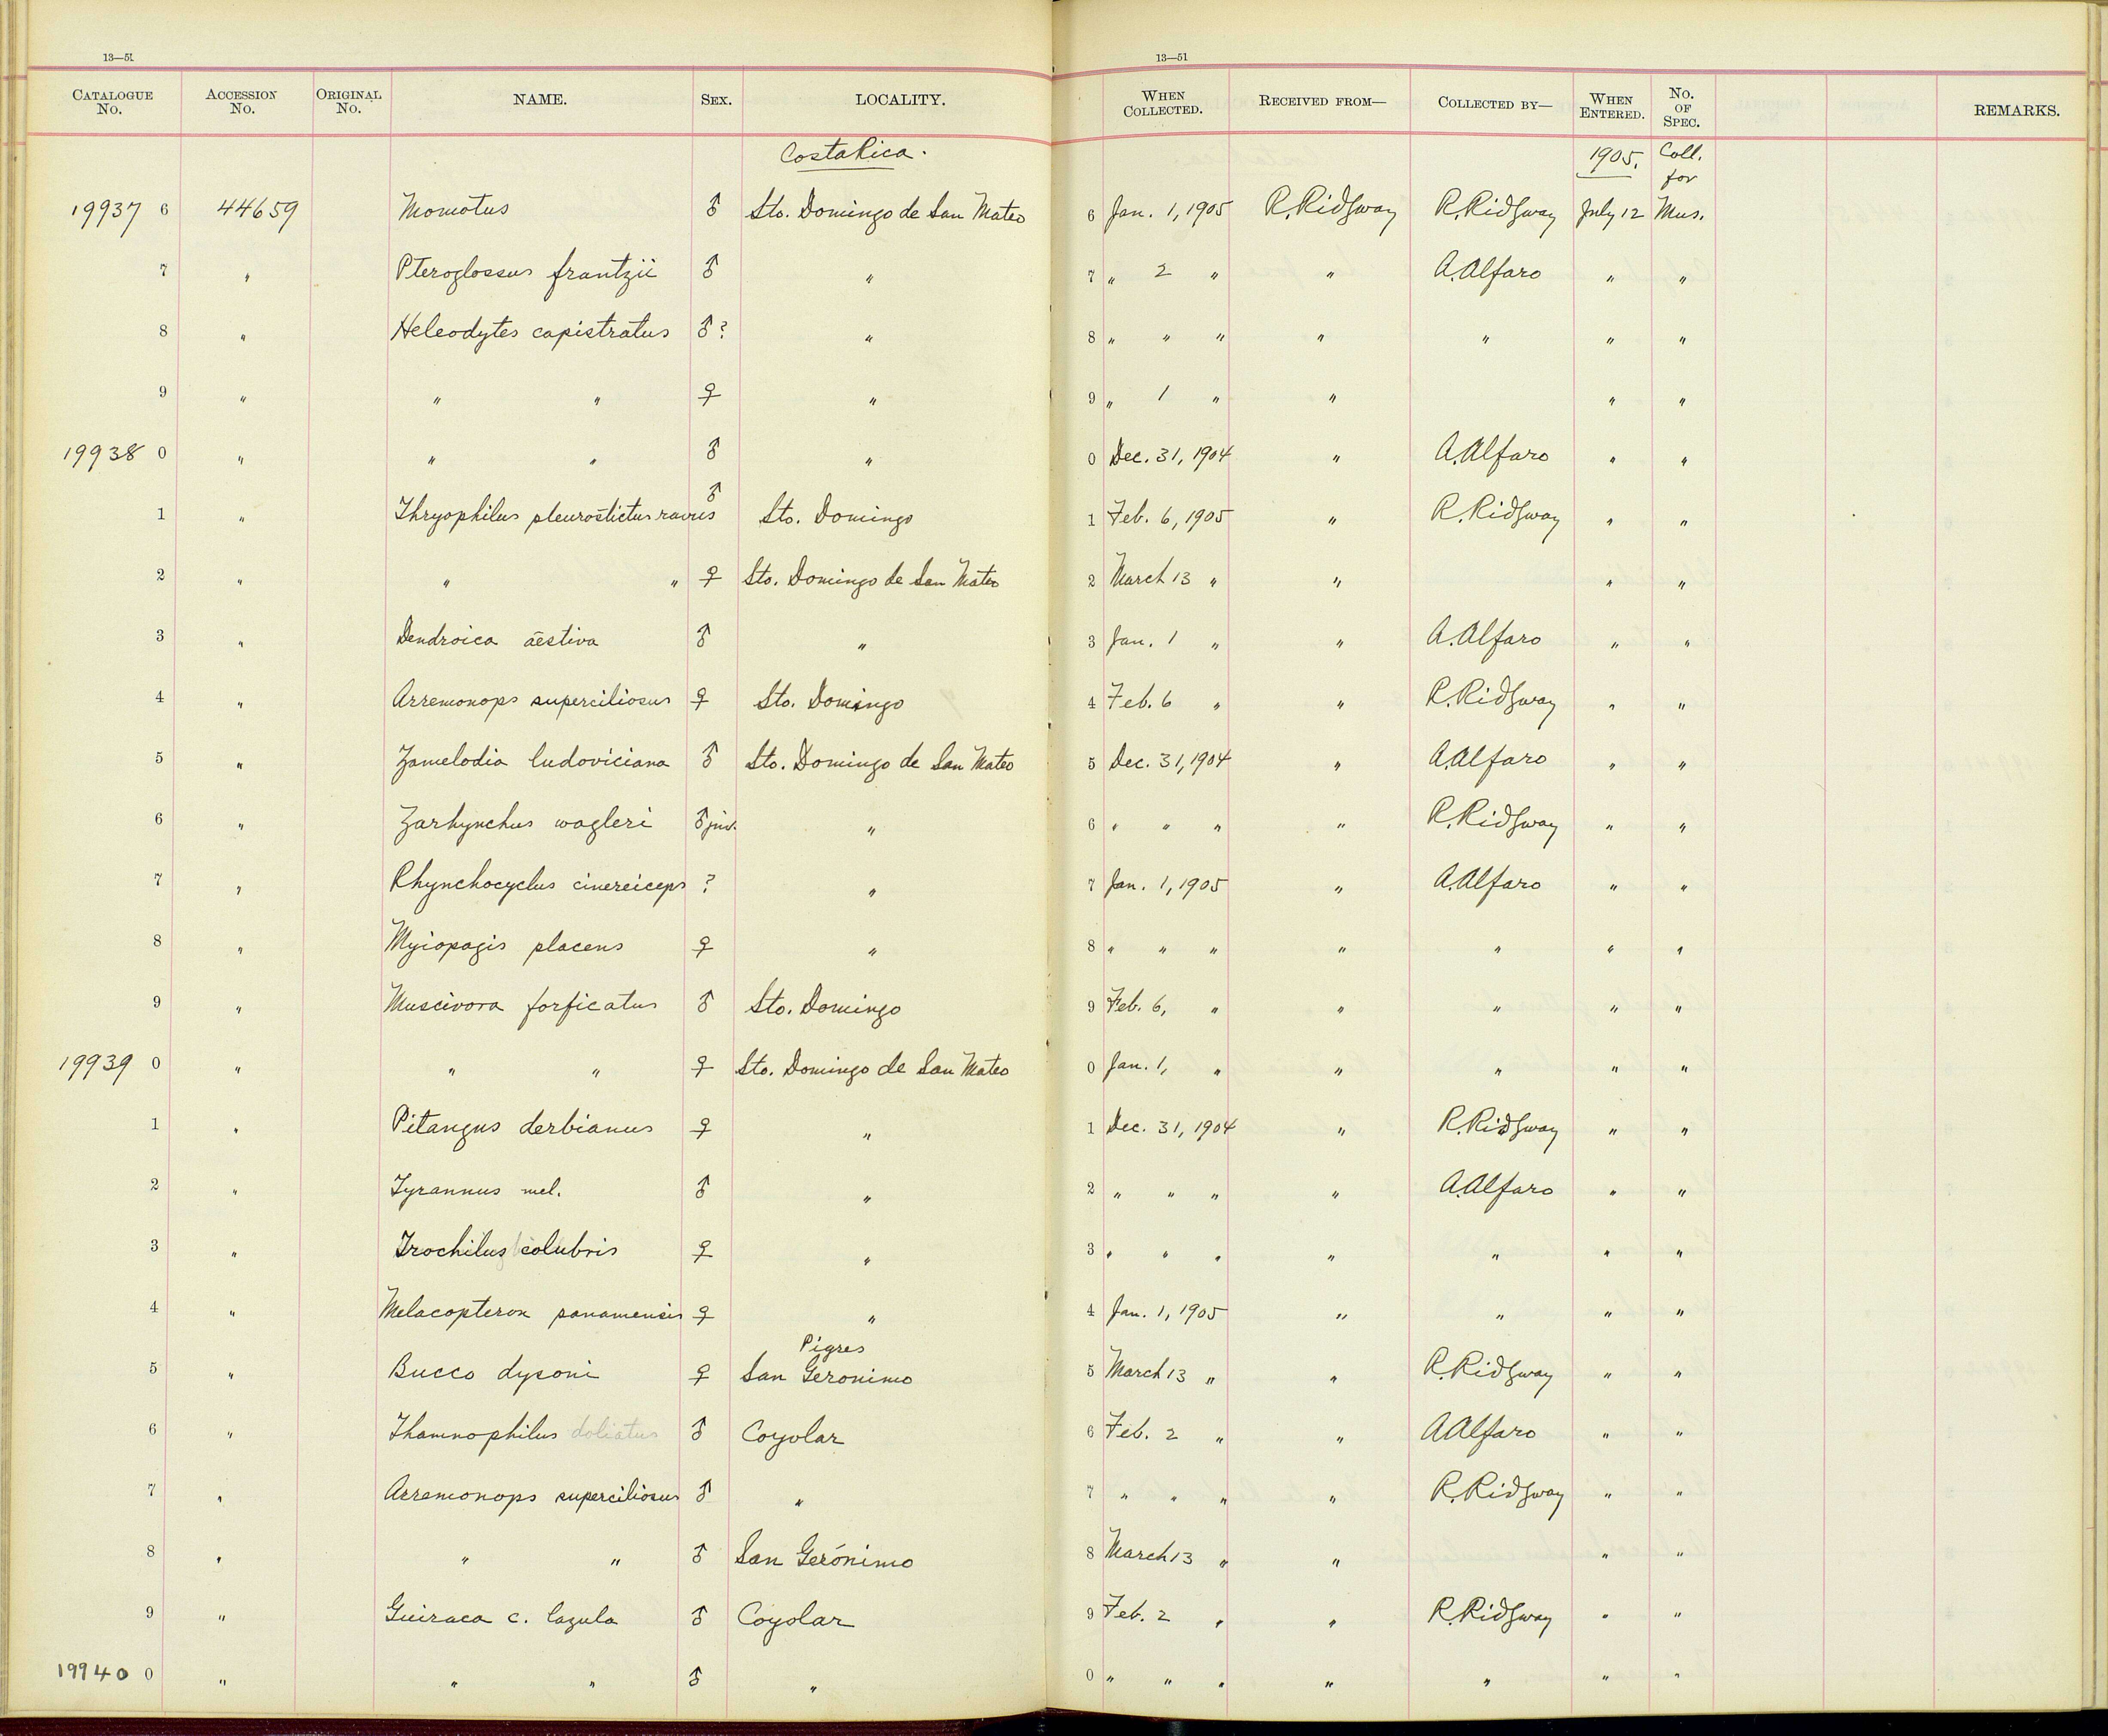 13—51
13—51
CATALOGUE No. ACCESSION No. ORIGINAL No. NAME. SEX. LOCALITY. WHEN COLLECTED. RECEIVED FROM— COLLECTED BY— WHEN ENTERED. No. OF SPEC. REMARKS.
Costa Rica. 1905. Coll. for
19937 6 44659 Momotus ♂ Sto. Domingo de San Mateo 6 Jan. 1, 1905 R. Ridgway R. Ridgway July 12 Mus.
7 " Pteroglossus frantzii ♂ " 7 " 2 " " A. Alfaro " "
8 " Heleodytes capistratus ♂? " 8 " " " " " " "
9 " " " ♀ " 9 " 1 " " " "
19938 0 " " " ♂ " 0 Dec. 31, 1904 " A. Alfaro " "
1 " Thryophilus pleurostictus ravus ♂ Sto. Domingo 1 Feb. 6, 1905 " R. Ridgway " "
2 " " " ♀ Sto. Domingo de San Mateo 2 March 13 " " " "
3 " Dendroica aestiva ♂ " 3 Jan. 1 " " A. Alfaro " "
4 " Arremonops superciliosus ♀ Sto. Domingo 4 Feb. 6 " " R. Ridgway " "
5 " Zamelodia ludoviciana ♂ Sto. Domingo de San Mateo 5 Dec. 31, 1904 " A. Alfaro " "
6 " Zarhynchus wagleri ♂ juv. " 6 " " " " R. Ridgway " "
7 " Rhynchocyclus cinereiceps ? " 7 Jan. 1, 1905 " A. Alfaro " "
8 " Myiopagis placens ♀ " 8 " " " " " " "
9 " Muscivora forficatus ♂ Sto. Domingo 9 Feb. 6, " " " " "
19939 0 " " " ♀ Sto. Domingo de San Mateo 0 Jan. 1, " " " " "
1 " Pitangus derbianus ♀ " 1 Dec. 31, 1904 " R. Ridgway " "
2 " Tyrannus mel. ♂ " 2 " " " " A. Alfaro " "
3 " Trochilus colubris ♀ " 3 " " " " " " "
4 " Melacopteron panamensis ♀ " 4 Jan. 1, 1905 " " " "
Pigres
5 " Bucco dysoni ♀ San Geronimo 5 March 13 " " R. Ridgway " "
6 " Thamnophilus doliatus ♂ Coyolar 6 Feb. 2 " " A Alfaro " "
7 " Arremonops superciliosus ♂ " 7 " " " " R. Ridgway " "
8 " " " ♂ San Gerónimo 8 March 13 " " " "
9 " Guiraca c. lazula ♂ Coyolar 9 Feb. 2 " " R. Ridgway " "
19940 0 " " " ♂ " 0 " " " " " " "